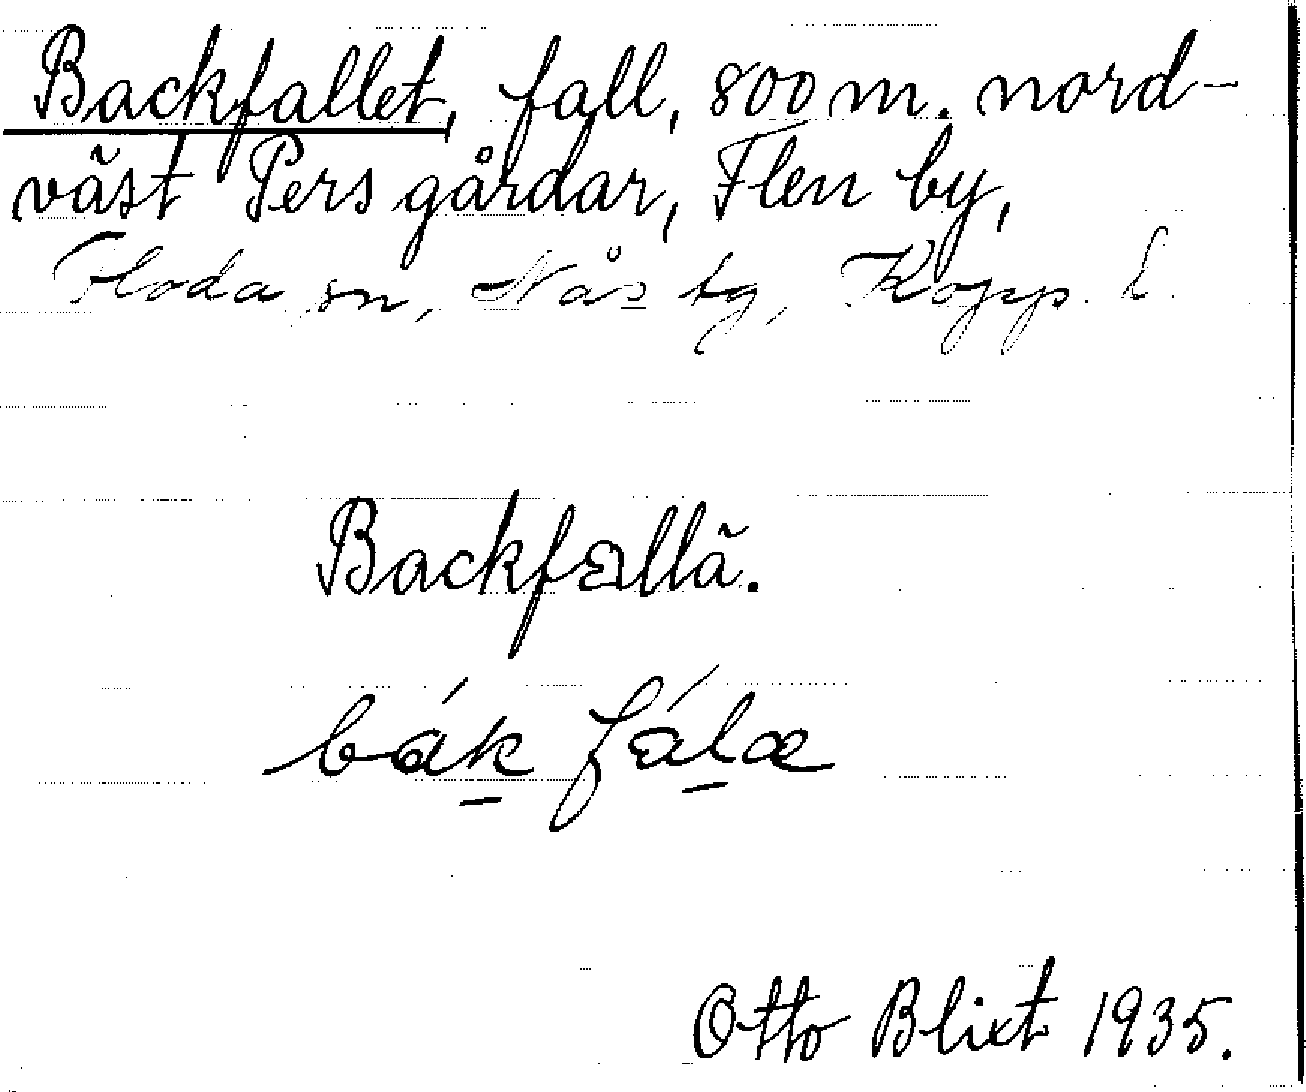 Backfallet, fall, 800 m. nord-
väst Pers gårdar, Flen by,
Floda sn, Nås tg, Kopp. L.
Backfallä.
bák fálæ
Otto Blixt 1935.